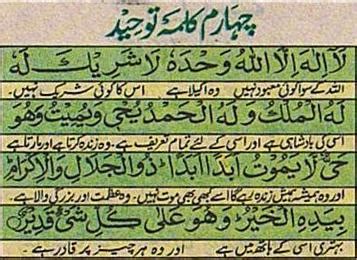 چہارم کلمہ توحید
لَآ اِلٰهَ اِلَّا اللهُ وَحْدَهٗ لَا شَرِيْكَ لَهٗ
اللہ کے سوا کوئی معبود نہیں وہ اکیلا ہے اس کا کوئی شریک نہیں۔
لَهُ الْمُلْكُ وَ لَهُ الْحَمْدُ يُحْيٖ وَ يُمِيْتُ وَهُوَ
اسی کی بادشاہی ہے اور اسی کے لئے تمام تعریف ہے۔ وہ زندہ کرتا ہے اور مارتا ہے
حَیٌّ لَّا يَمُوْتُ اَبَدًا اَبَدًا ذُوالْجَلَالِ وَالْاِكْرَامِ
اور وہ ہمیشہ ہمیش زندہ رہے گا اسے کبھی بھی موت نہیں۔ وہ عظمت اور بزرگی والا ہے۔
بِيَدِهِ الْخَيْرُ وَهُوَ عَلٰى كُلِّ شَیْءٍ قَدِيْرٌ
بہتری اسی کے ہاتھ میں ہے اور وہ ہر چیز پر قادر ہے۔